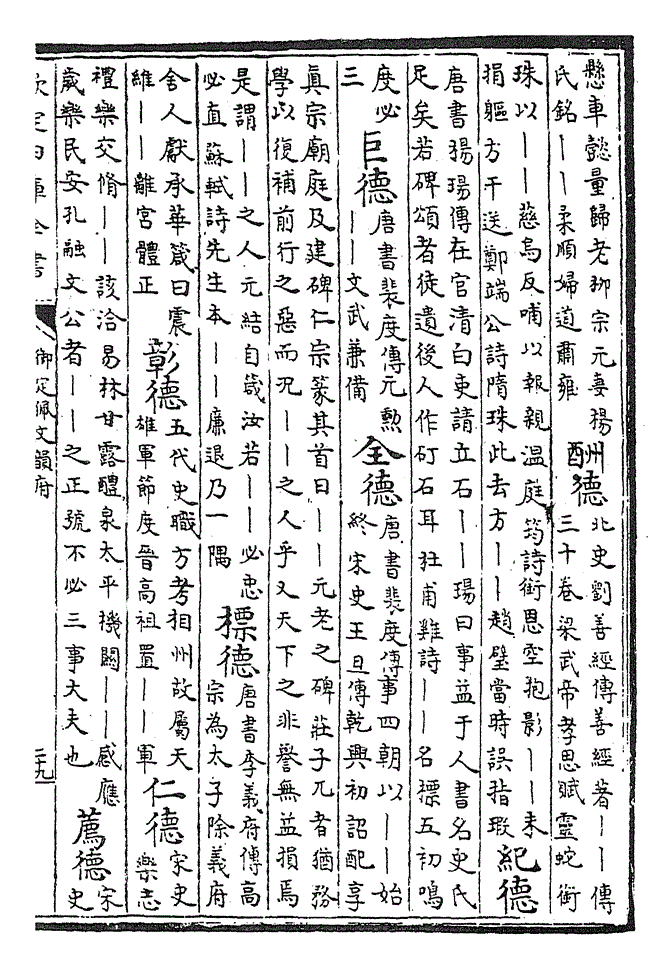 懸車懿量歸老柳宗元妻楊
氏銘——柔順婦道肅雍
酬德
北史劉善經傳善經著——傳
三十卷梁武帝孝思賦靈蛇銜
珠以——慈烏反哺以報親溫庭筠詩銜恩空抱影——未
捐軀方干送鄭端公詩隋珠此去方——趙璧當時誤指瑕
紀德
唐書楊瑒傳在官清白吏請立石——瑒曰事益于人書名史氏
足矣若碑頌者徒遺後人作矴石耳杜甫雞詩——名標五初鳴
度必
三
巨德
唐書裴度傳元勲
——文武兼備
全德
唐書裴度傳事四朝以——始
終宋史王旦傳乾興初詔配享
真宗廟庭及建碑仁宗篆其首曰——元老之碑莊子兀者猶務
學以復補前行之惡而況——之人乎又天下之非譽無益損焉
是謂——之人元結自箴汝若——必忠
必直蘇軾詩先生本——廉退乃一隅
標德
唐書李義府傳高
宗為太子除義府
舍人獻承華箴曰震
維——離宮體正
彰德
五代史職方考相州故屬天
雄軍節度晉高祖置——軍
仁德
宋史
樂志
禮樂交脩——該洽易林甘露醴泉太平機關——感應
歲樂民安孔融文公者——之正號不必三事大夫也
薦德
宋
史
欽定四庫全書
御定佩文韻府